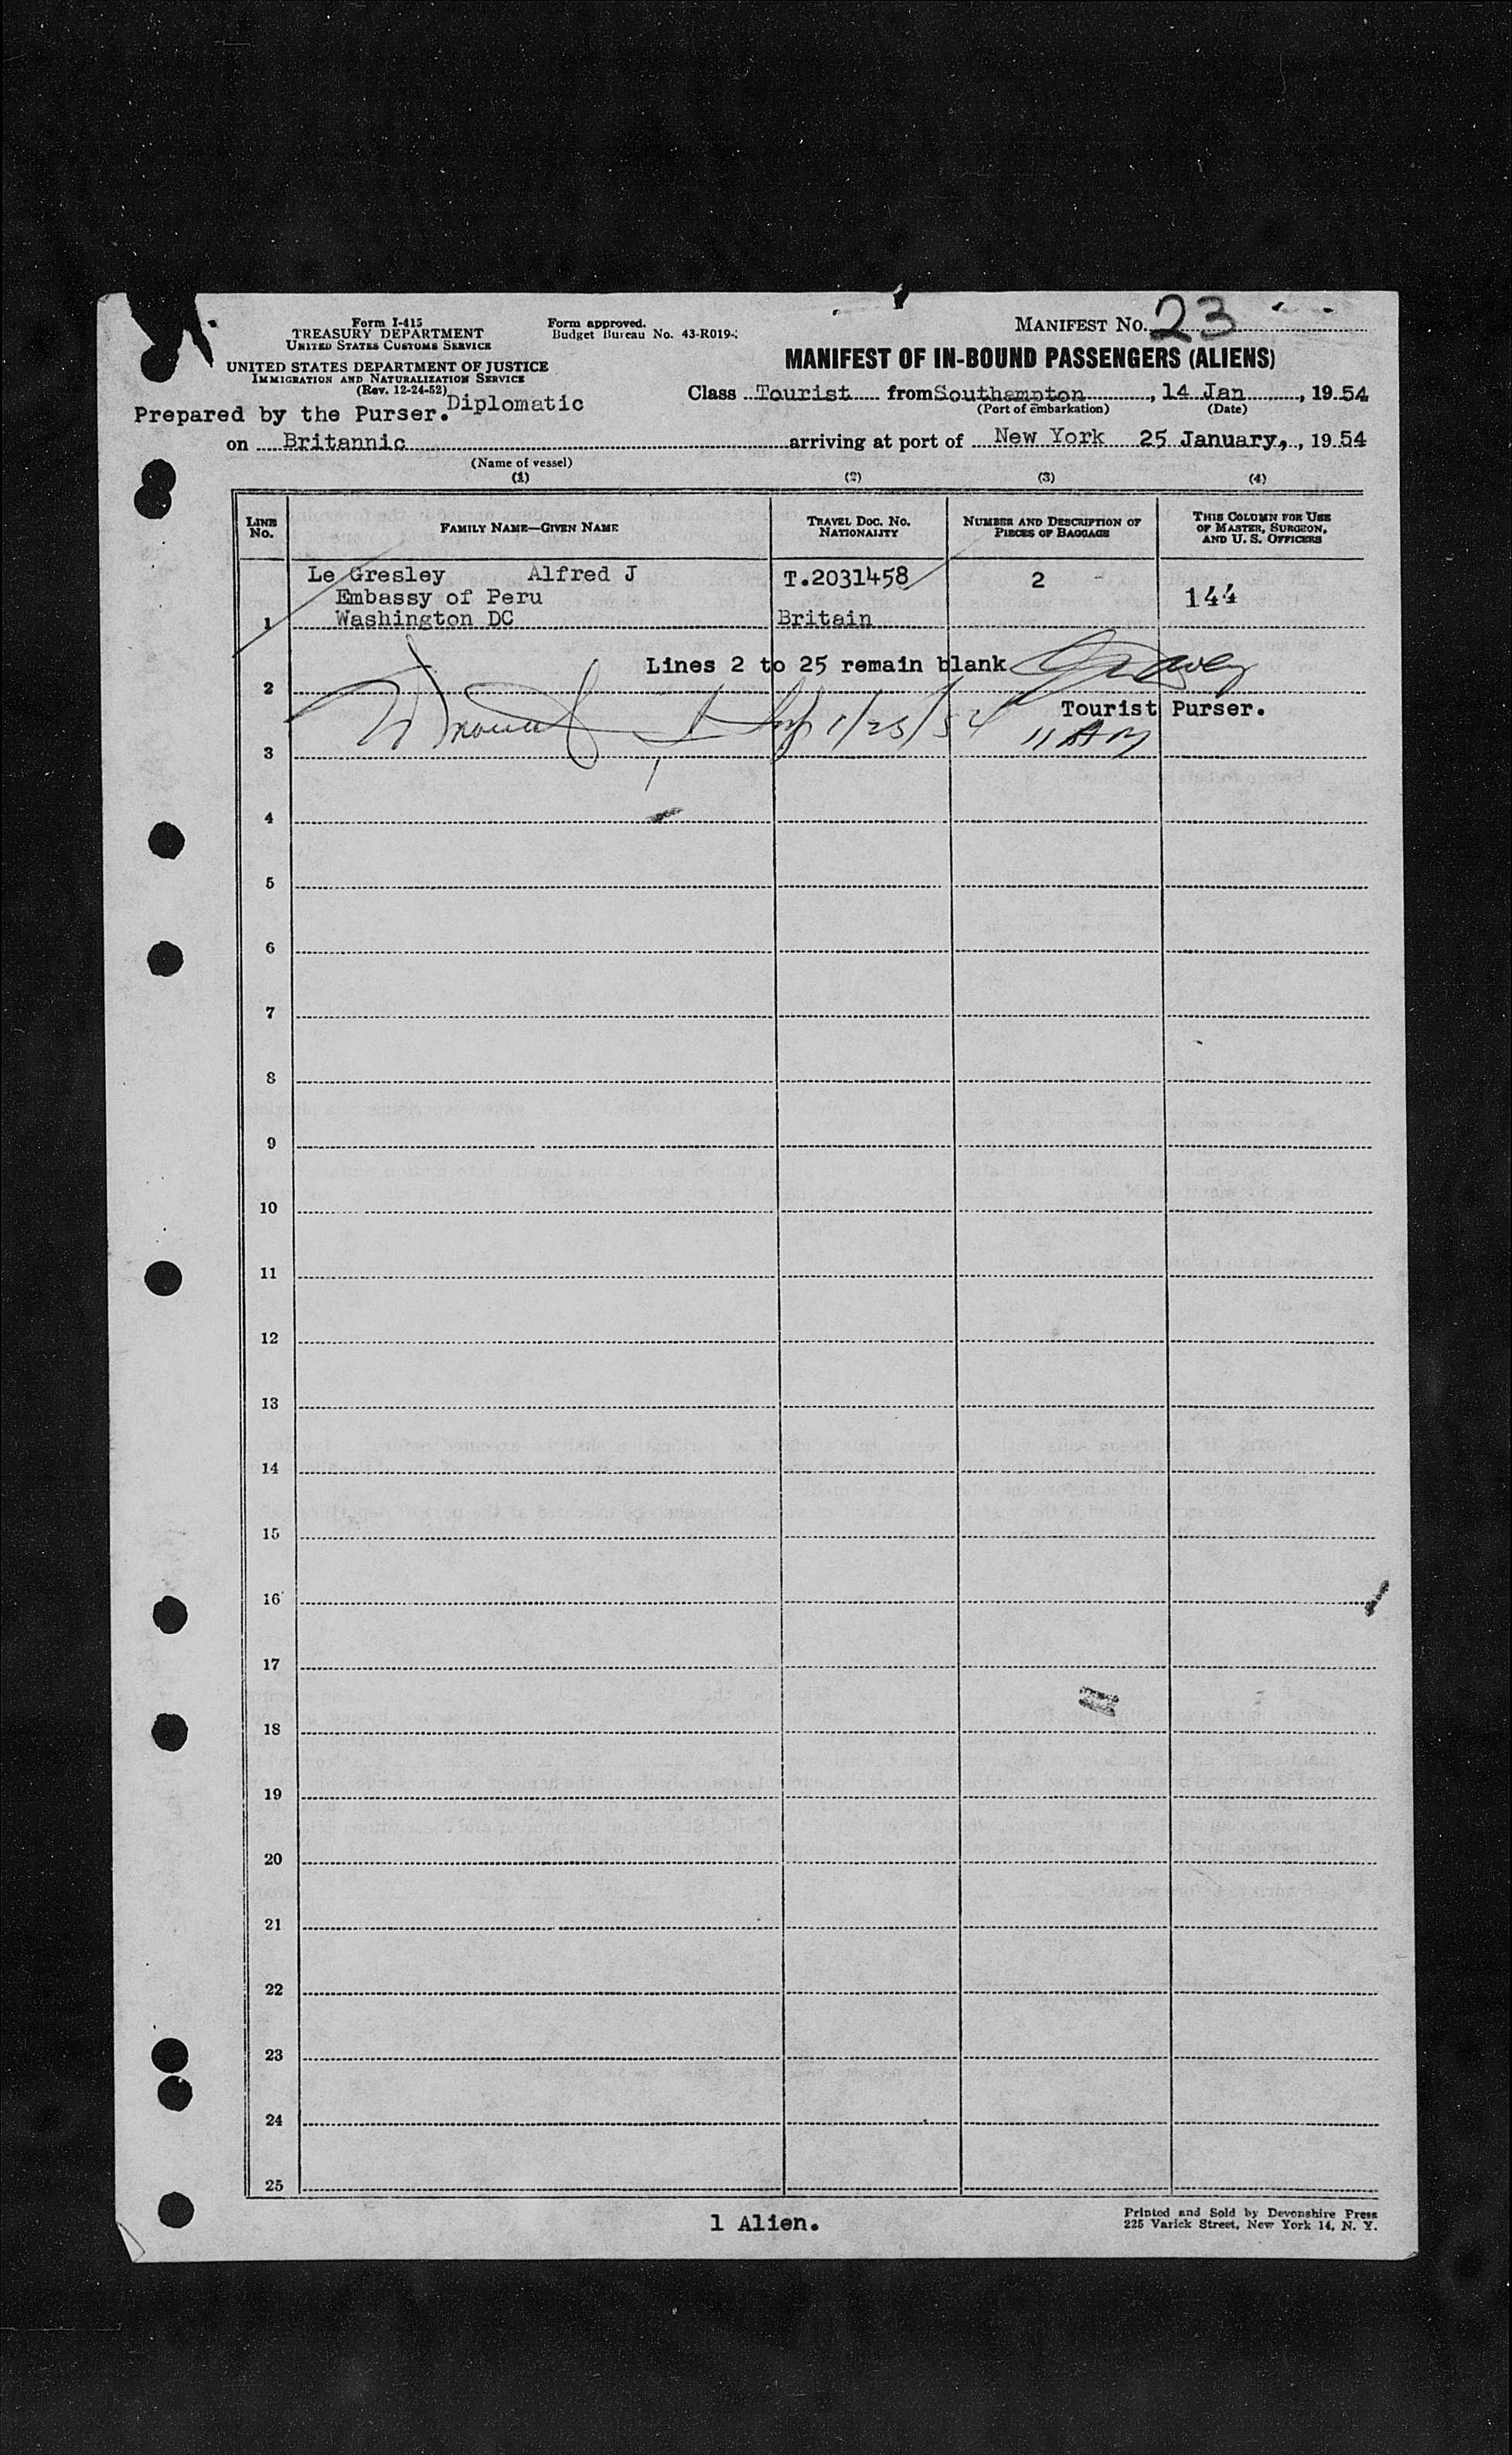 Form I-415
TREASURY DEPARTMENT
UNITED STATES CUSTOMS SERVICE
UNITED STATES DEPARTMENT OF JUSTICE
IMMIGRATION AND NATURALIZATION SERVICE
(Rev. 12-24-52)
Form approved.
Budget Bureau No. 43-R019-
MANIFEST NO. 23
MANIFEST OF IN-BOUND PASSENGERS (ALIENS)
Class Tourist from Southampton, 14 Jan, 1954
(Port of embarkation) (Date)
Prepared by the Purser. Diplomatic
on Britannic arriving at port of New York 25 January,, 1954
(Name of vessel)
(1) (2) (3) (4)
LINE NO. FAMILY NAME—GIVEN NAME TRAVEL DOC. NO. NATIONALITY NUMBER AND DESCRIPTION OF PIECES OF BAGGAGE THIS COLUMN FOR USE OF MASTER, SURGEON, AND U. S. OFFICERS
Le Gresley Alfred J T.2031458 2 144
Embassy of Peru
1 Washington DC Britain
Lines 2 to 25 remain blank
2
Tourist Purser.
1/25/54 11 AM
3
4
5
6
7
8
9
10
11
12
13
14
15
16
17
18
19
20
21
22
23
24
25
1 Alien.
Printed and Sold by Devonshire Press
225 Varick Street, New York 14, N. Y.